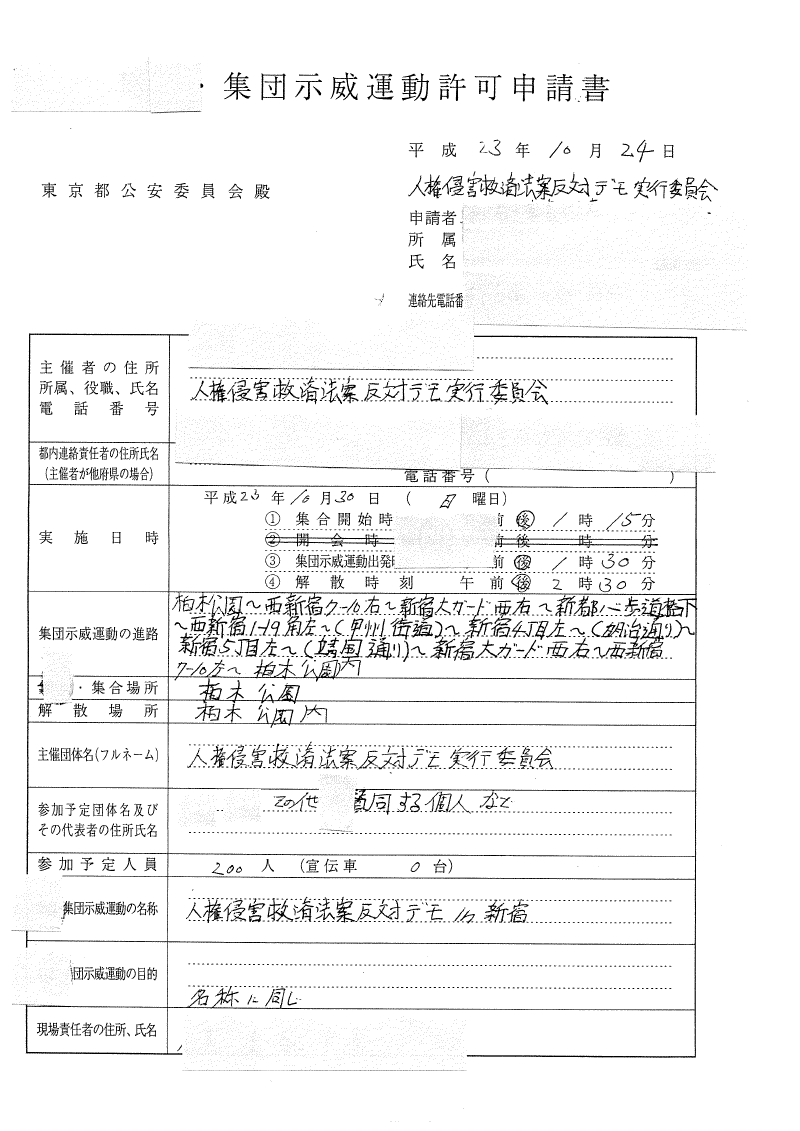 ・集団示威運動許可申請書
平成23年10月24日
東京都公安委員会殿
人権侵害救済法案反対デモ実行委員会
申請者
所属
氏名
連絡先電話番
主催者の住所
所属、役職、氏名
電話番号
人権侵害救済法案反対デモ実行委員会
都内連絡責任者の住所氏名
(主催者が他府県の場合)
電話番号( )
実施日時
平成23年10月30日 (日曜日)
① 集合開始時 前 後 1時15分
② 開会時 前 後 時 分
③ 集団示威運動出発時 前 後 1時30分
④ 解散時刻 午前 後 2時30分
集団示威運動の進路
柏木公園〜西新宿7-10右〜新宿大ガード西右〜新都心歩道橋下
〜西新宿1-19角左〜(甲州街道)〜新宿4丁目左〜(明治通り)〜
新宿5丁目左〜(靖国通り)〜新宿大ガード西右〜西新宿
7-10左〜柏木公園内
・集合場所
柏木公園
解散場所
柏木公園内
主催団体名(フルネーム)
人権侵害救済法案反対デモ実行委員会
参加予定団体名及び
その代表者の住所氏名
その他 賛同する個人など
参加予定人員
200人 (宣伝車 0台)
集団示威運動の名称
人権侵害救済法案反対デモ in 新宿
団示威運動の目的
名称に同じ
現場責任者の住所、氏名